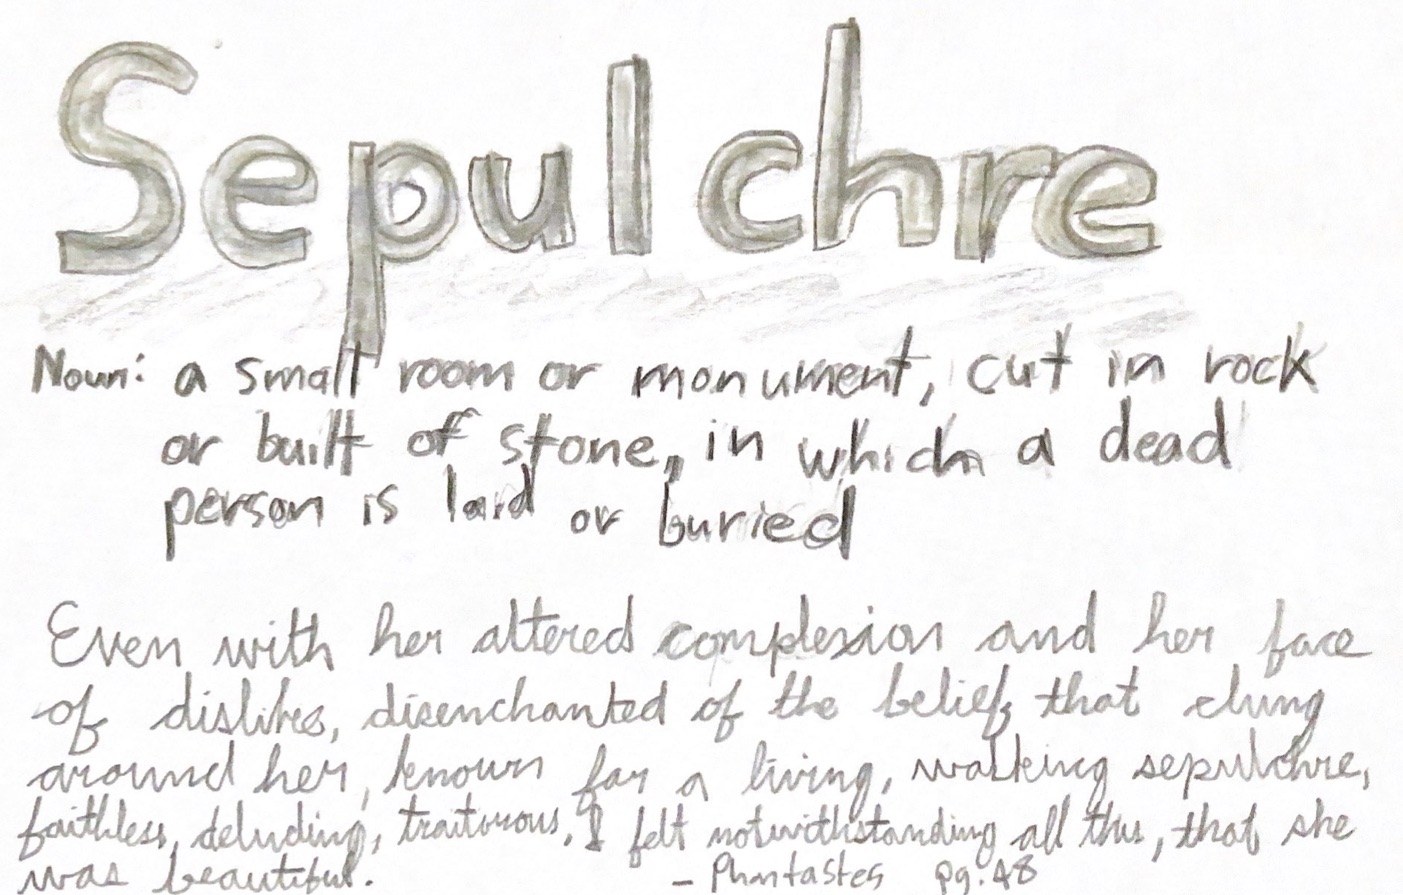 Sepulchre
Noun: a small room or monument, cut in rock
or built of stone, in which a dead
person is laid or buried
Even with her altered complexion and her face
of dislikes, disenchanted of the belief that clung
around her, known for a living, walking sepulchre,
faithless, deluding, traitorous, I felt notwithstanding all this, that she
was beautiful.
- Phantastes pg. 48